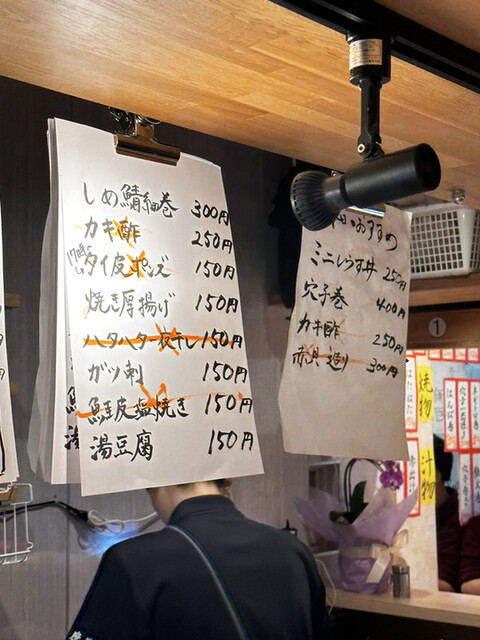 しめ鯖細巻 300円
カキ酢 250円
タイ皮ポンズ 150円
焼き厚揚げ 150円
ハタハタ一夜干し 150円
ガツ刺 150円
鮭皮塩焼き 150円
湯豆腐 150円
おすすめ
ミニしらす丼 250円
穴子巻 400円
カキ酢 250円
赤貝造り 300円
1
焼物
汁物
はたはた